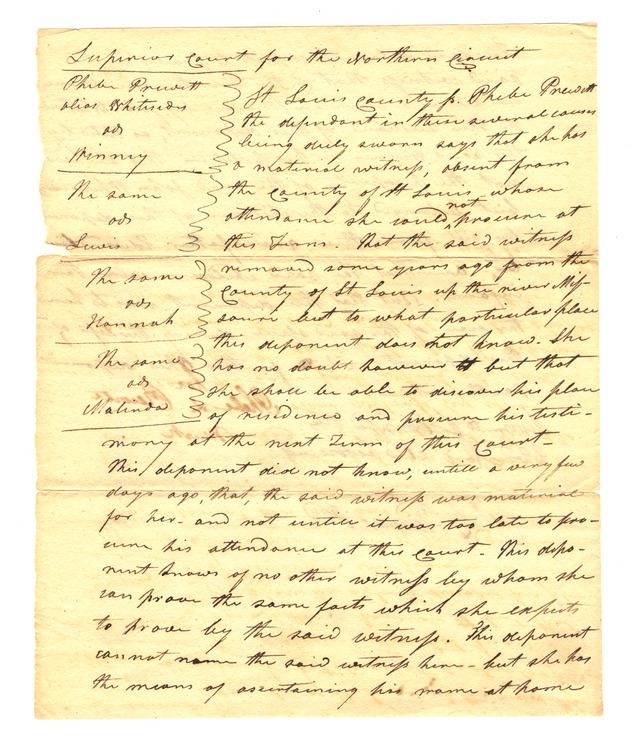 Superior Court for the Northern Circuit
Phebe Prewitt
alias Whitesides
ads
Winney
The same
ads
Lewis
The same
ads
Hannah
The same
ads
Malinda
St Louis County ss. Phebe Prewitt
the defendant in these several causes
being duly sworn says that she has
a material witness, absent from
the county of St Louis whose
attendance she could not procure at
this Term. That the said witness
removed some years ago from the
County of St Louis up the river Mis-
souri but to what particular place
this deponent does not know. She
has no doubt however but that
she shall be able to discover his place
of residence and procure his testi-
mony at the next Term of this Court—
This deponent did not know, untill a very few
days ago, that, the said witness was material
for her— and not untill it was too late to pro-
cure his attendance at this Court— This depo-
nent knows of no other witness by whom she
can prove the same facts which she expects
to prove by the said witness. This deponent
cannot name the said witness here— but she has
the means of ascertaining his name at home